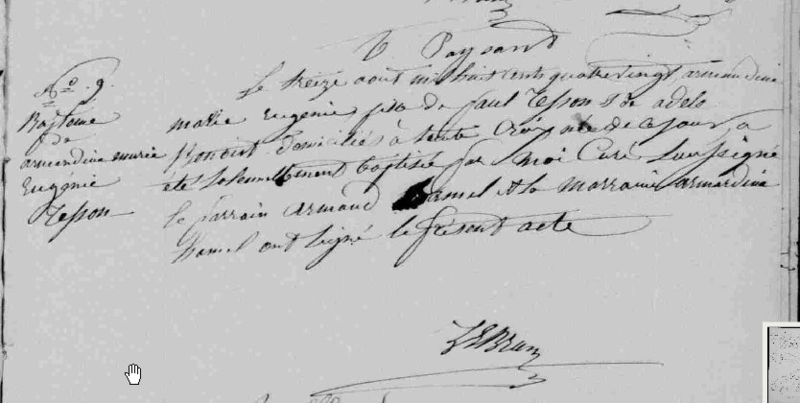 V. Paysant
No. 9.
Baptême
De
armandine marie
Eugénie
Tesson
Le treize aout mil huit cent quatre vingt armandine
marie Eugénie fille de Paul Tesson & de adele
domiciliés à Sainte Croix née de ce jour a
été solennellement baptisée par moi Curé soussigné
le parrain armand hamel et la marraine armandine
hamel ont signé le présent acte
LEBrun